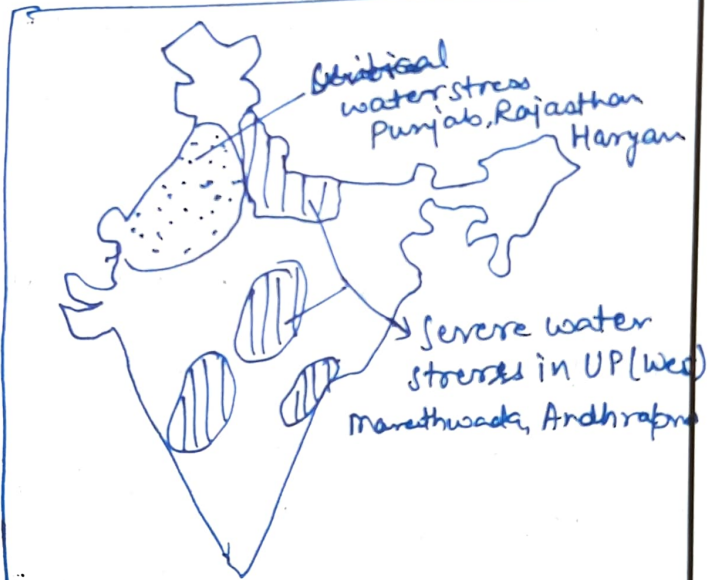 Critical
water stress
Punjab, Rajasthan
Haryan
Severe water
stress in UP (Wes)
Marathwada, Andhrapra